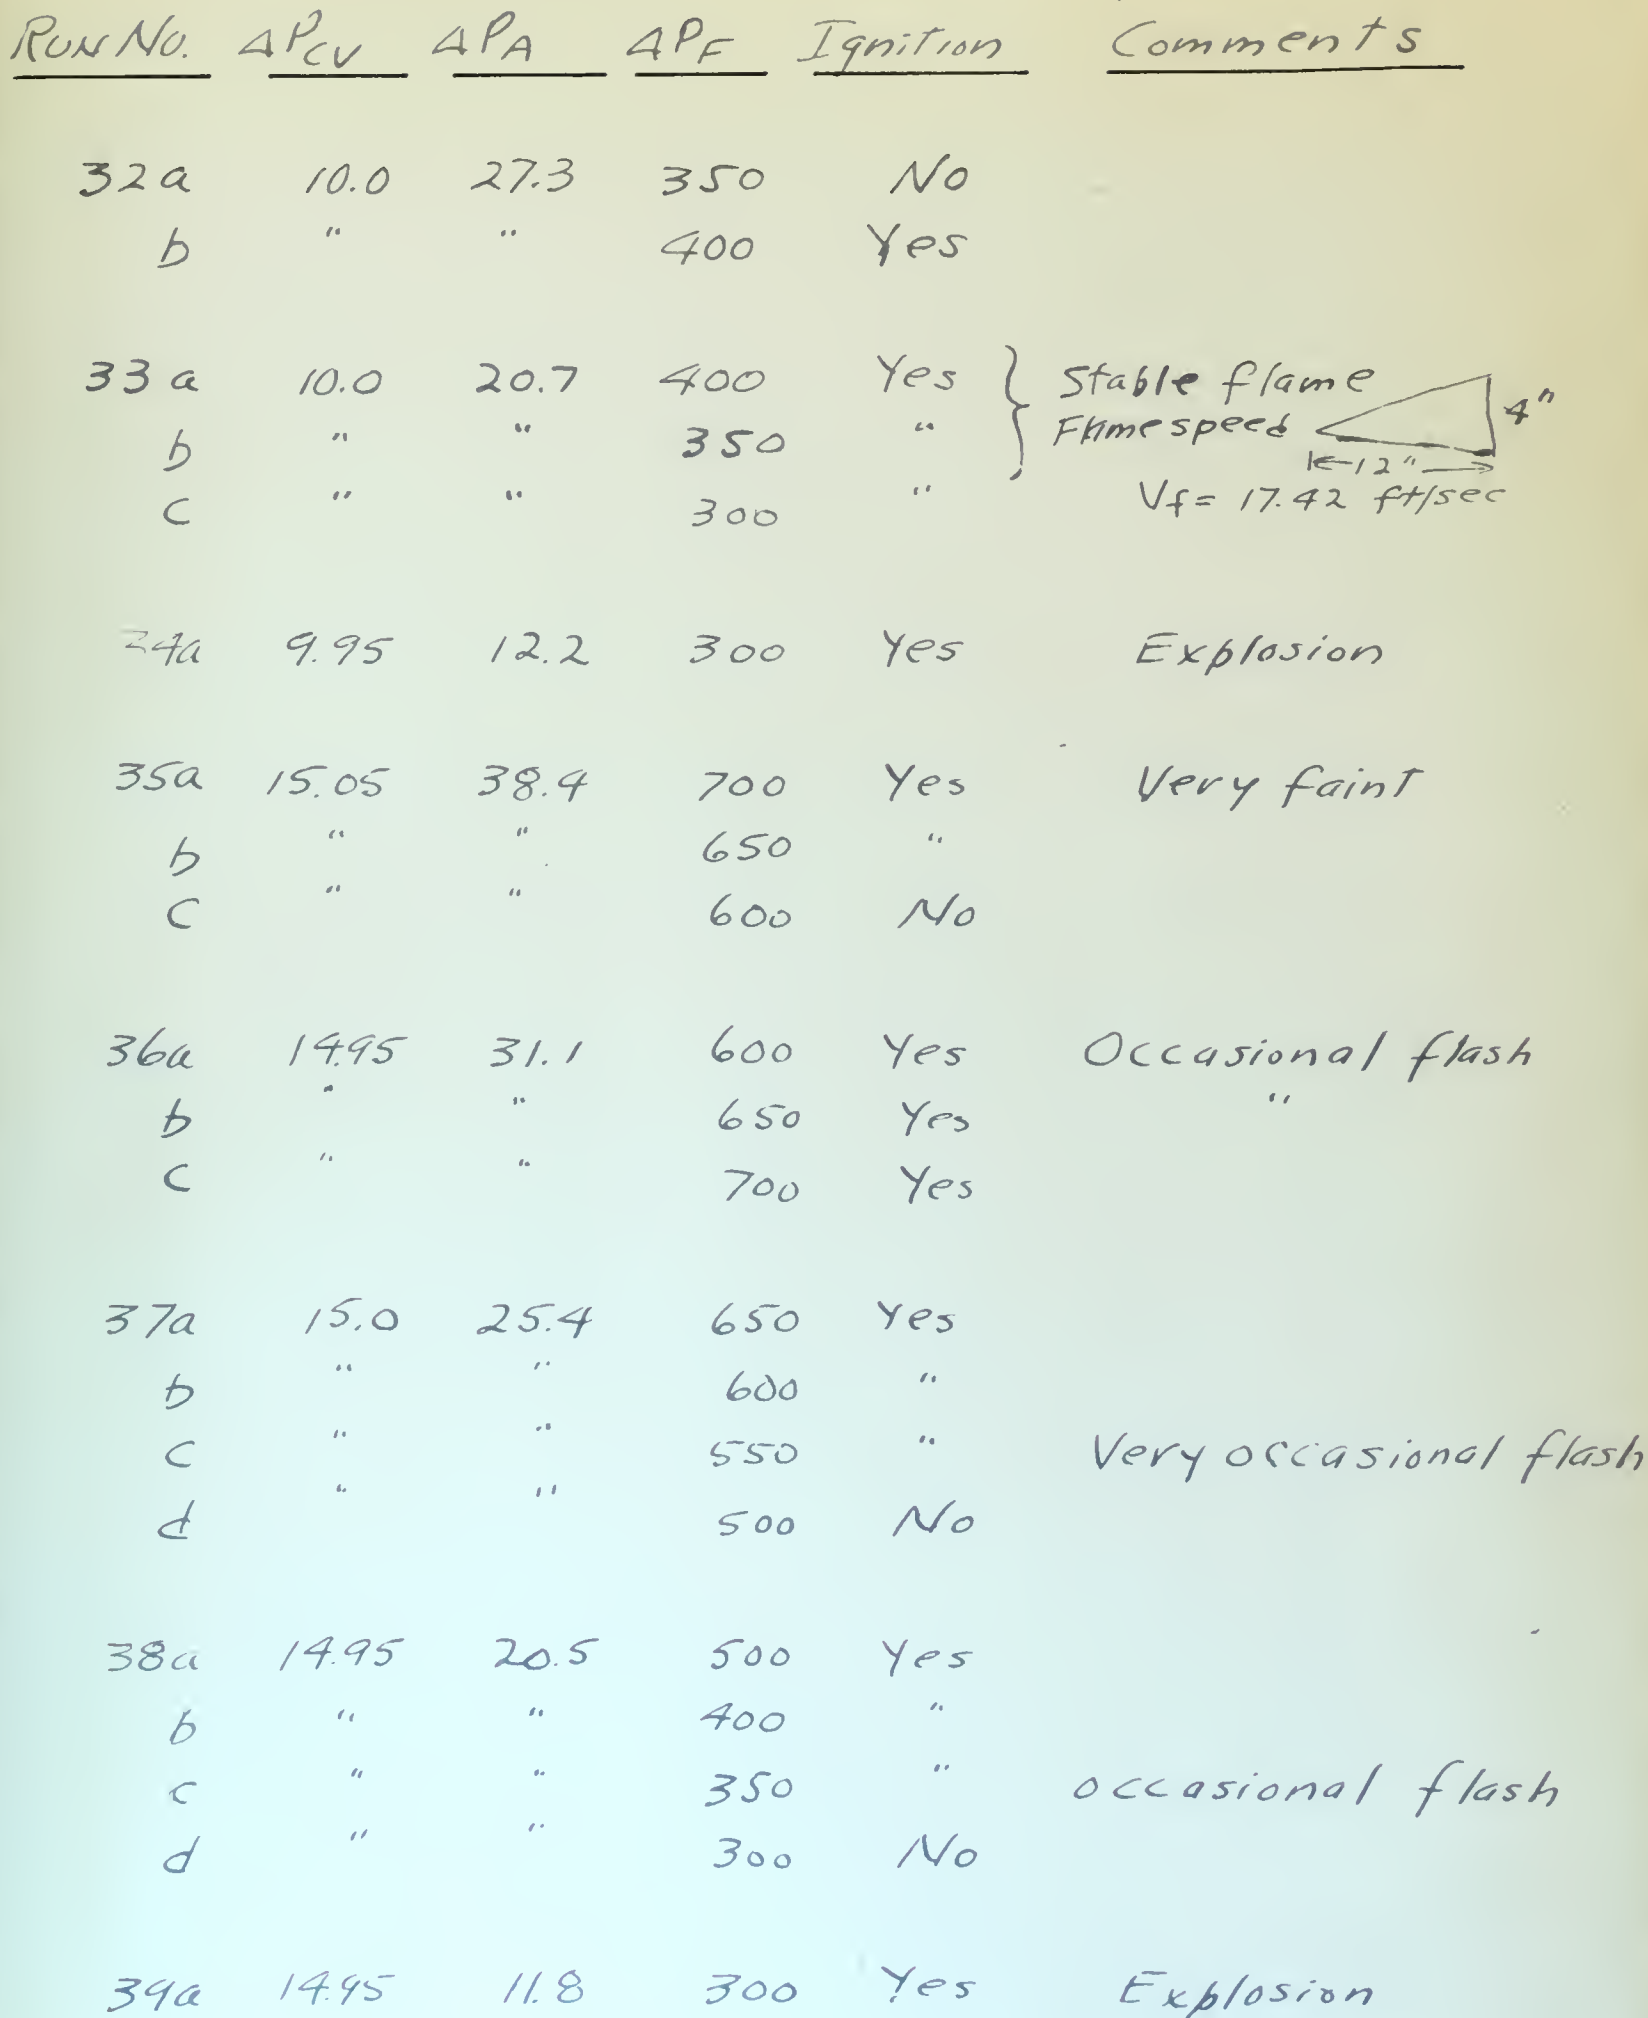 Run No. ΔPCV ΔPA ΔPF Ignition Comments
32a 10.0 27.3 350 No
b " " 400 Yes
33a 10.0 20.7 400 Yes } Stable flame
b " " 350 " Flamespeed 4"
12"
c " " 300 " Vf = 17.42 ft/sec
34a 9.95 12.2 300 Yes Explosion
35a 15.05 38.4 700 Yes Very faint
b " " 650 "
c " " 600 No
36a 14.95 31.1 600 Yes Occasional flash
b " " 650 Yes "
c " " 700 Yes
37a 15.0 25.4 650 Yes
b " " 600 "
c " " 550 " Very occasional flash
d " " 500 No
38a 14.95 20.5 500 Yes
b " " 400 "
c " " 350 " occasional flash
d " " 300 No
39a 14.95 11.8 300 Yes Explosion